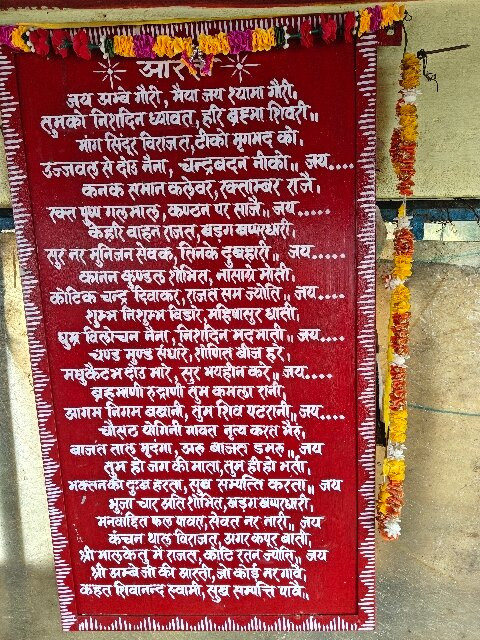 आरती
जय अम्बे गौरी, मैया जय श्यामा गौरी।
तुमको निशदिन ध्यावत, हरि ब्रह्मा शिवरी॥
मांग सिंदूर विराजत, टीको मृगमद को।
उज्जवल से दोउ नैना, चन्द्रबदन नीको॥ जय....
कनक समान कलेवर, रक्ताम्बर राजै।
रक्त पुष्प गल माल, कण्ठन पर साजै॥ जय.....
केहरि वाहन राजत, खड़ग खप्परधारी।
सुर नर मुनिजन सेवक, तिनके दुखहारी॥ जय....
कानन कुण्डल शोभित, नासाग्रे मोती।
कोटिक चन्द्र दिवाकर, राजत सम ज्योति॥ जय....
शुम्भ निशुम्भ विडारे, महिषासुर धाती।
धुम्र विलोचन नैना, निशदिन मदमाती॥ जय....
चण्ड मुण्ड संधारे, शोणित बीज हरे।
मधुकैटभ दोउ मारे, सुर भयहीन करे॥ जय.....
ब्रह्माणी रुद्राणी तुम कमला रानी।
आगम निगम बखानी, तुम शिव पटरानी॥ जय....
चौसठ योगिनी गावत नृत्य करत भैरुं।
बाजत ताल मृदंगा, अरु बाजत डमरु॥ जय
तुम हो जग की माता, तुम ही हो भर्ता।
भक्तन की दुःख हरता, सुख सम्पत्ति करता॥ जय
भुजा चार अति शोभित, खड़ग खप्परधारी।
मनवांछित फल पावत, सेवत नर नारी॥ जय
कंचन थाल विराजत, अगर कपूर बाती।
श्री मालकेतु में राजत, कोटि रतन ज्योति॥ जय
श्री अम्बे जी की आरती, जो कोई नर गावै।
कहत शिवानन्द स्वामी, सुख सम्पत्ति पावै॥